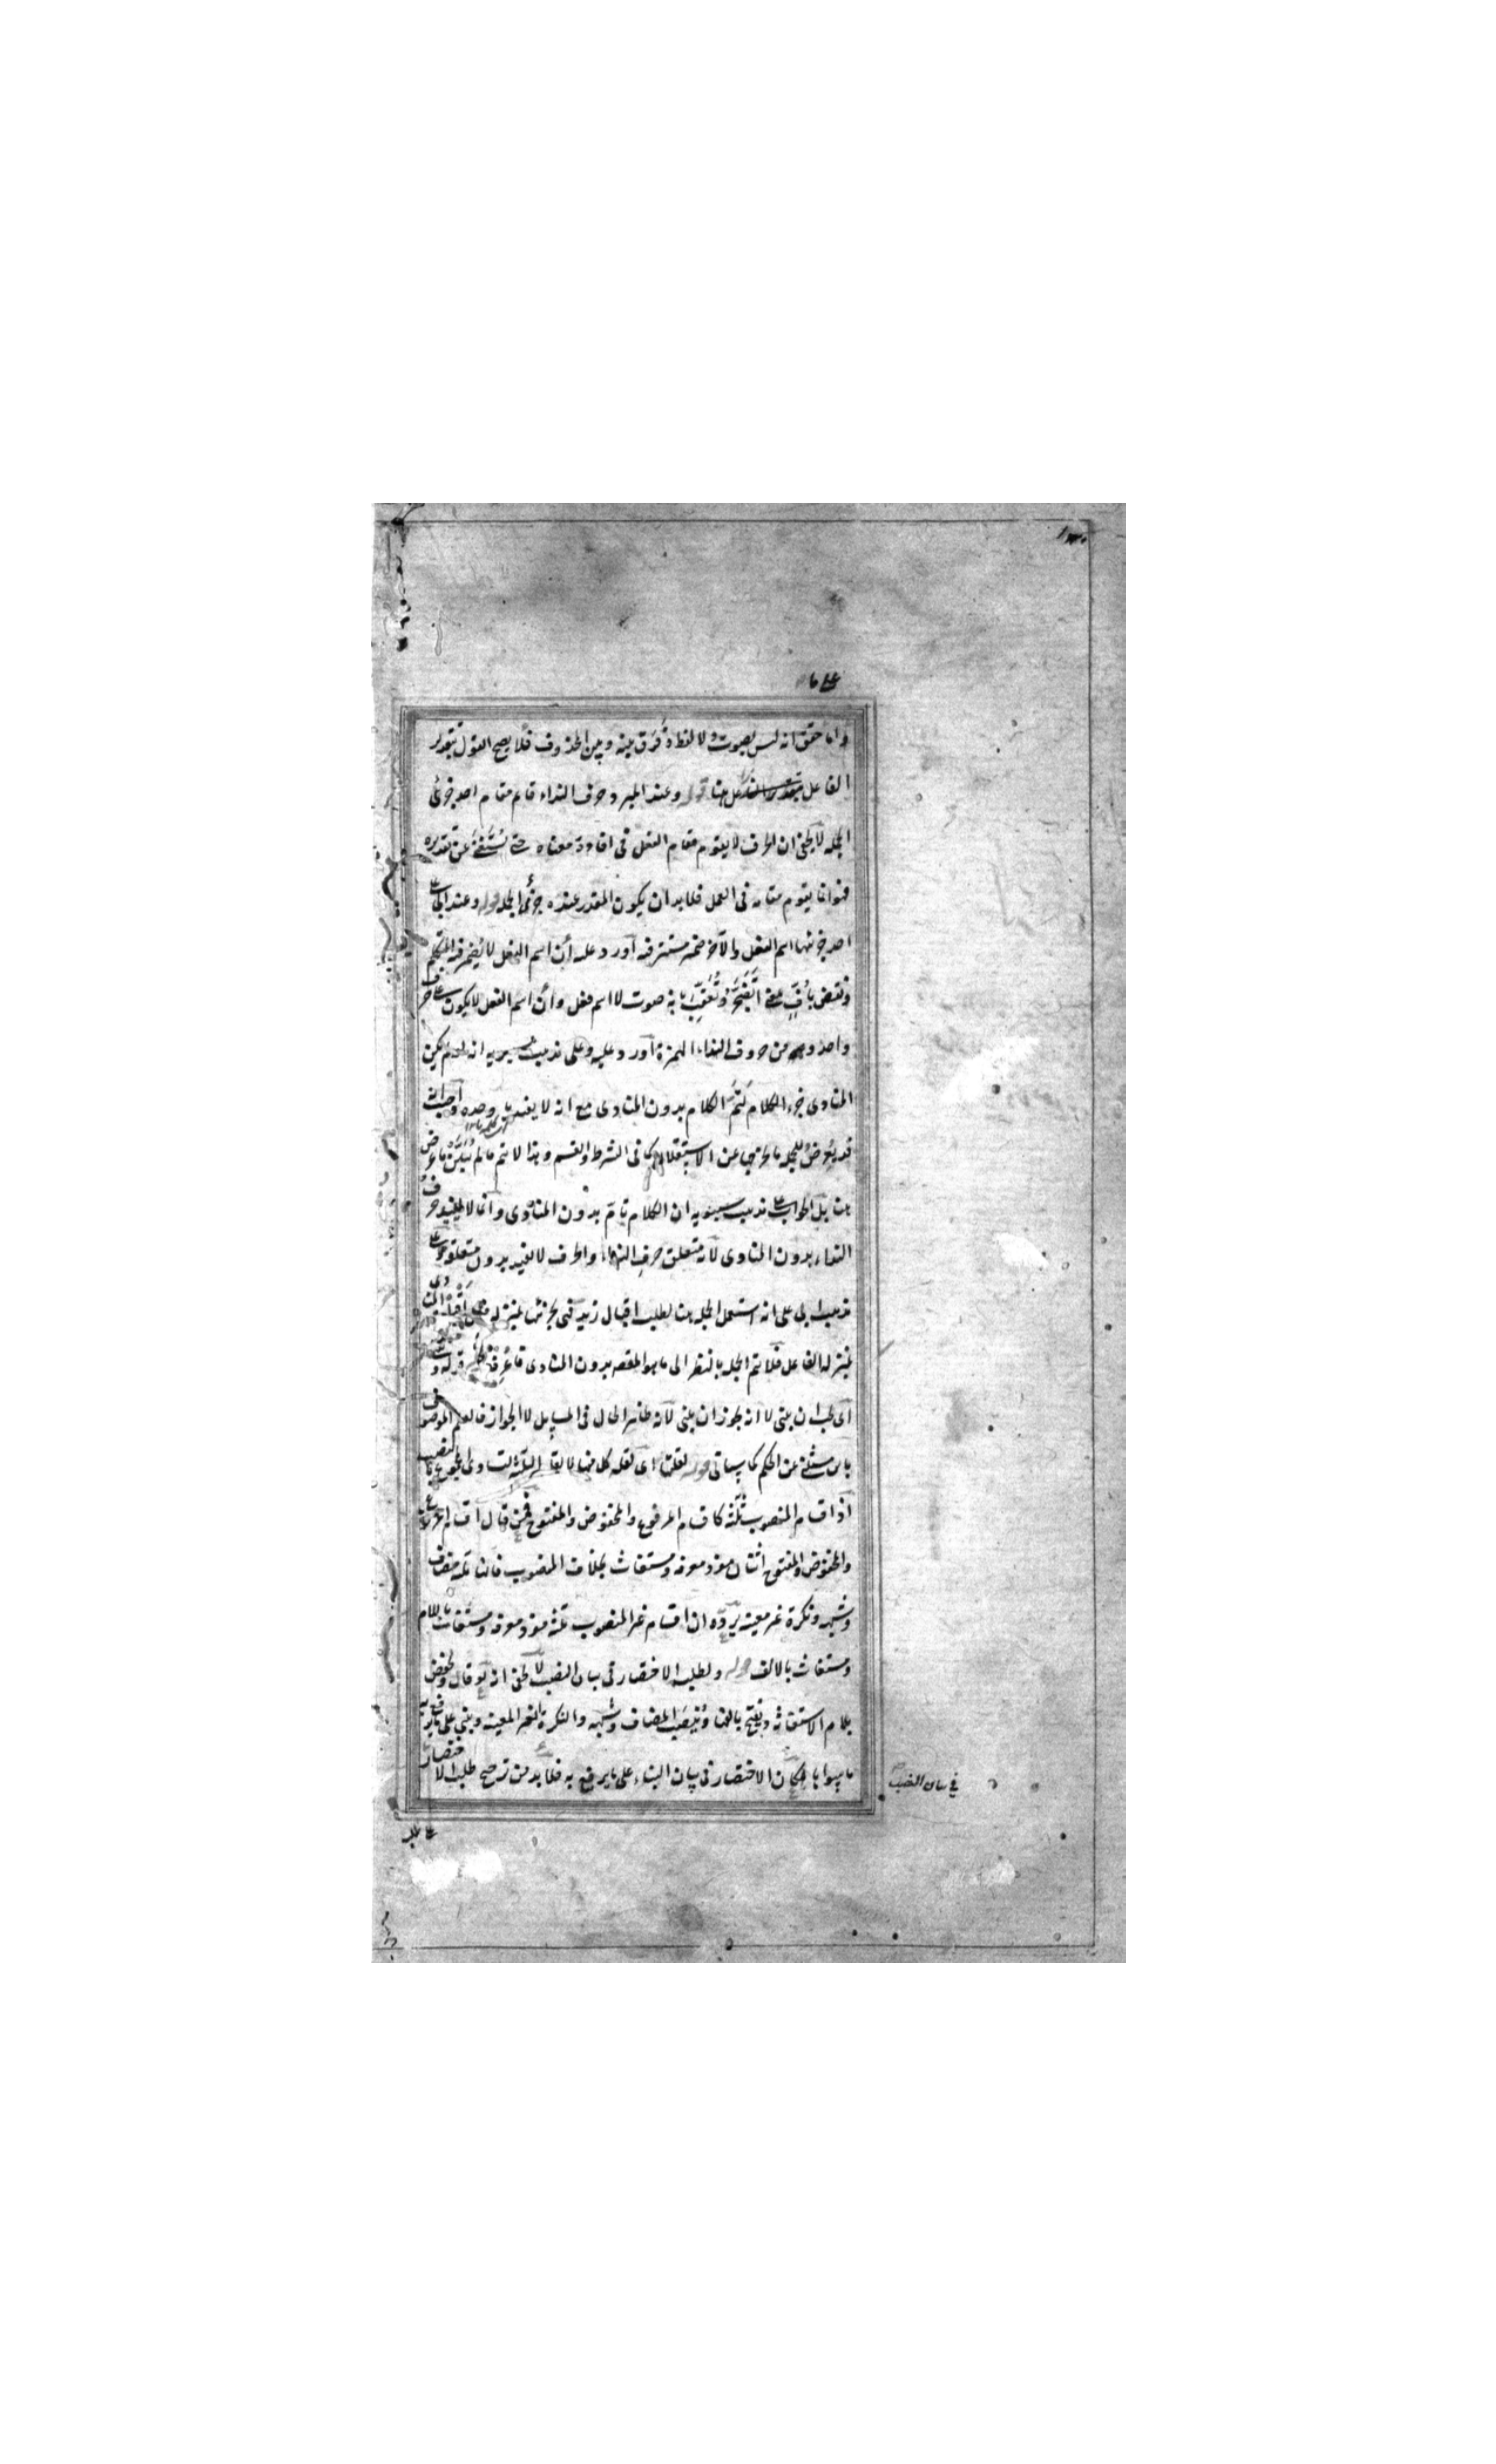 على ما
واما حقق انه ليس بصوت ولا لفظ وفرق بينه وبين المحذوف فلا يصح القول بتقدير
الفاعل هنا قوله وعند المبرد حرف النداء قائم مقام احد جزئى
الجملة لا يخفى ان الحرف لا يقوم مقام الفعل فى افادة معناه حتى يستغنى عن تقديره
فهو انما يقوم مقامه فى العمل فلا بد ان يكون المقدر عنده جزئى الجملة قوله وعند ابى على
احد جزئيها اسم الفعل والآخر ضمير مستتر فيه اورد عليه أن اسم الفعل لا يضمر فيه المتكلم
ونقض بأفٍّ بمعنى اتضجر وتعقب بانه صوت لا اسم فعل وأن اسم الفعل لا يكون على حرف
واحد ومن حروف النداء الهمزة اورد عليه وعلى مذهب سيبويه انه لو لم يكن
المنادى جزء الكلام لتمّ الكلام بدون المنادى مع انه لا يفيد يا وحده واجاب بانه
قد يعرض للجملة ما يخرجها عن الاستقلال كما فى الشرط والقسم وهذا لا يتم ما لم يبيّن ما عرض
هنا بل الجواب على مذهب سيبويه ان الكلام تامّ بدون المنادى وانما لا يفيد حرف
النداء بدون المنادى لانه متعلق حرف النداء والحرف لا يفيد بدون متعلقه وعلى
مذهب ابى على انه استعمل الجملة هنا لطلب اقبال زيد فهى بجزئيها بمنزلة المنادى
بمنزلة الفاعل فلا يتم الجملة بالنظر الى ما هو المقصد بدون المنادى فاعرفه قوله و
اى يجب ان يبنى لا انه يجوز ان يبنى لانه ظاهر الحال فى المسائل لا الجواز فالعلم الموصوف
بابن مستثنى عن الحكم كما سيأتى قوله لقلته اى لقلة كل منها لا لقلة الثلثة لتساوى المجموع بالنصب
اذ اقسام المنصوب ثلثة كاقسام المرفوع والمخفوض والمفتوح فمن قال اقسام المرفوع
والمخفوض والمفتوح اثنان مفرد معرفة ومستغاث بخلاف المنصوب فانها ثلثة مضاف
وشبهه ونكرة غير معينة يردّه ان اقسام غير المنصوب ثلثة مفرد معرفة ومستغاث باللام
ومستغاث بالالف قوله ولطلب الاختصار فى بيان النصب لا يخفى انه لو قال ويخفض
بلام الاستغاثة ويفتح بالفها وينصب المضاف وشبهه والنكرة الغير المعينة ويبنى على ما يرفع به
ما سواها كان الاختصار فى بيان البناء على ما يرفع به فلا بد من ترجيح طلب الاختصار
فى بيان النصب